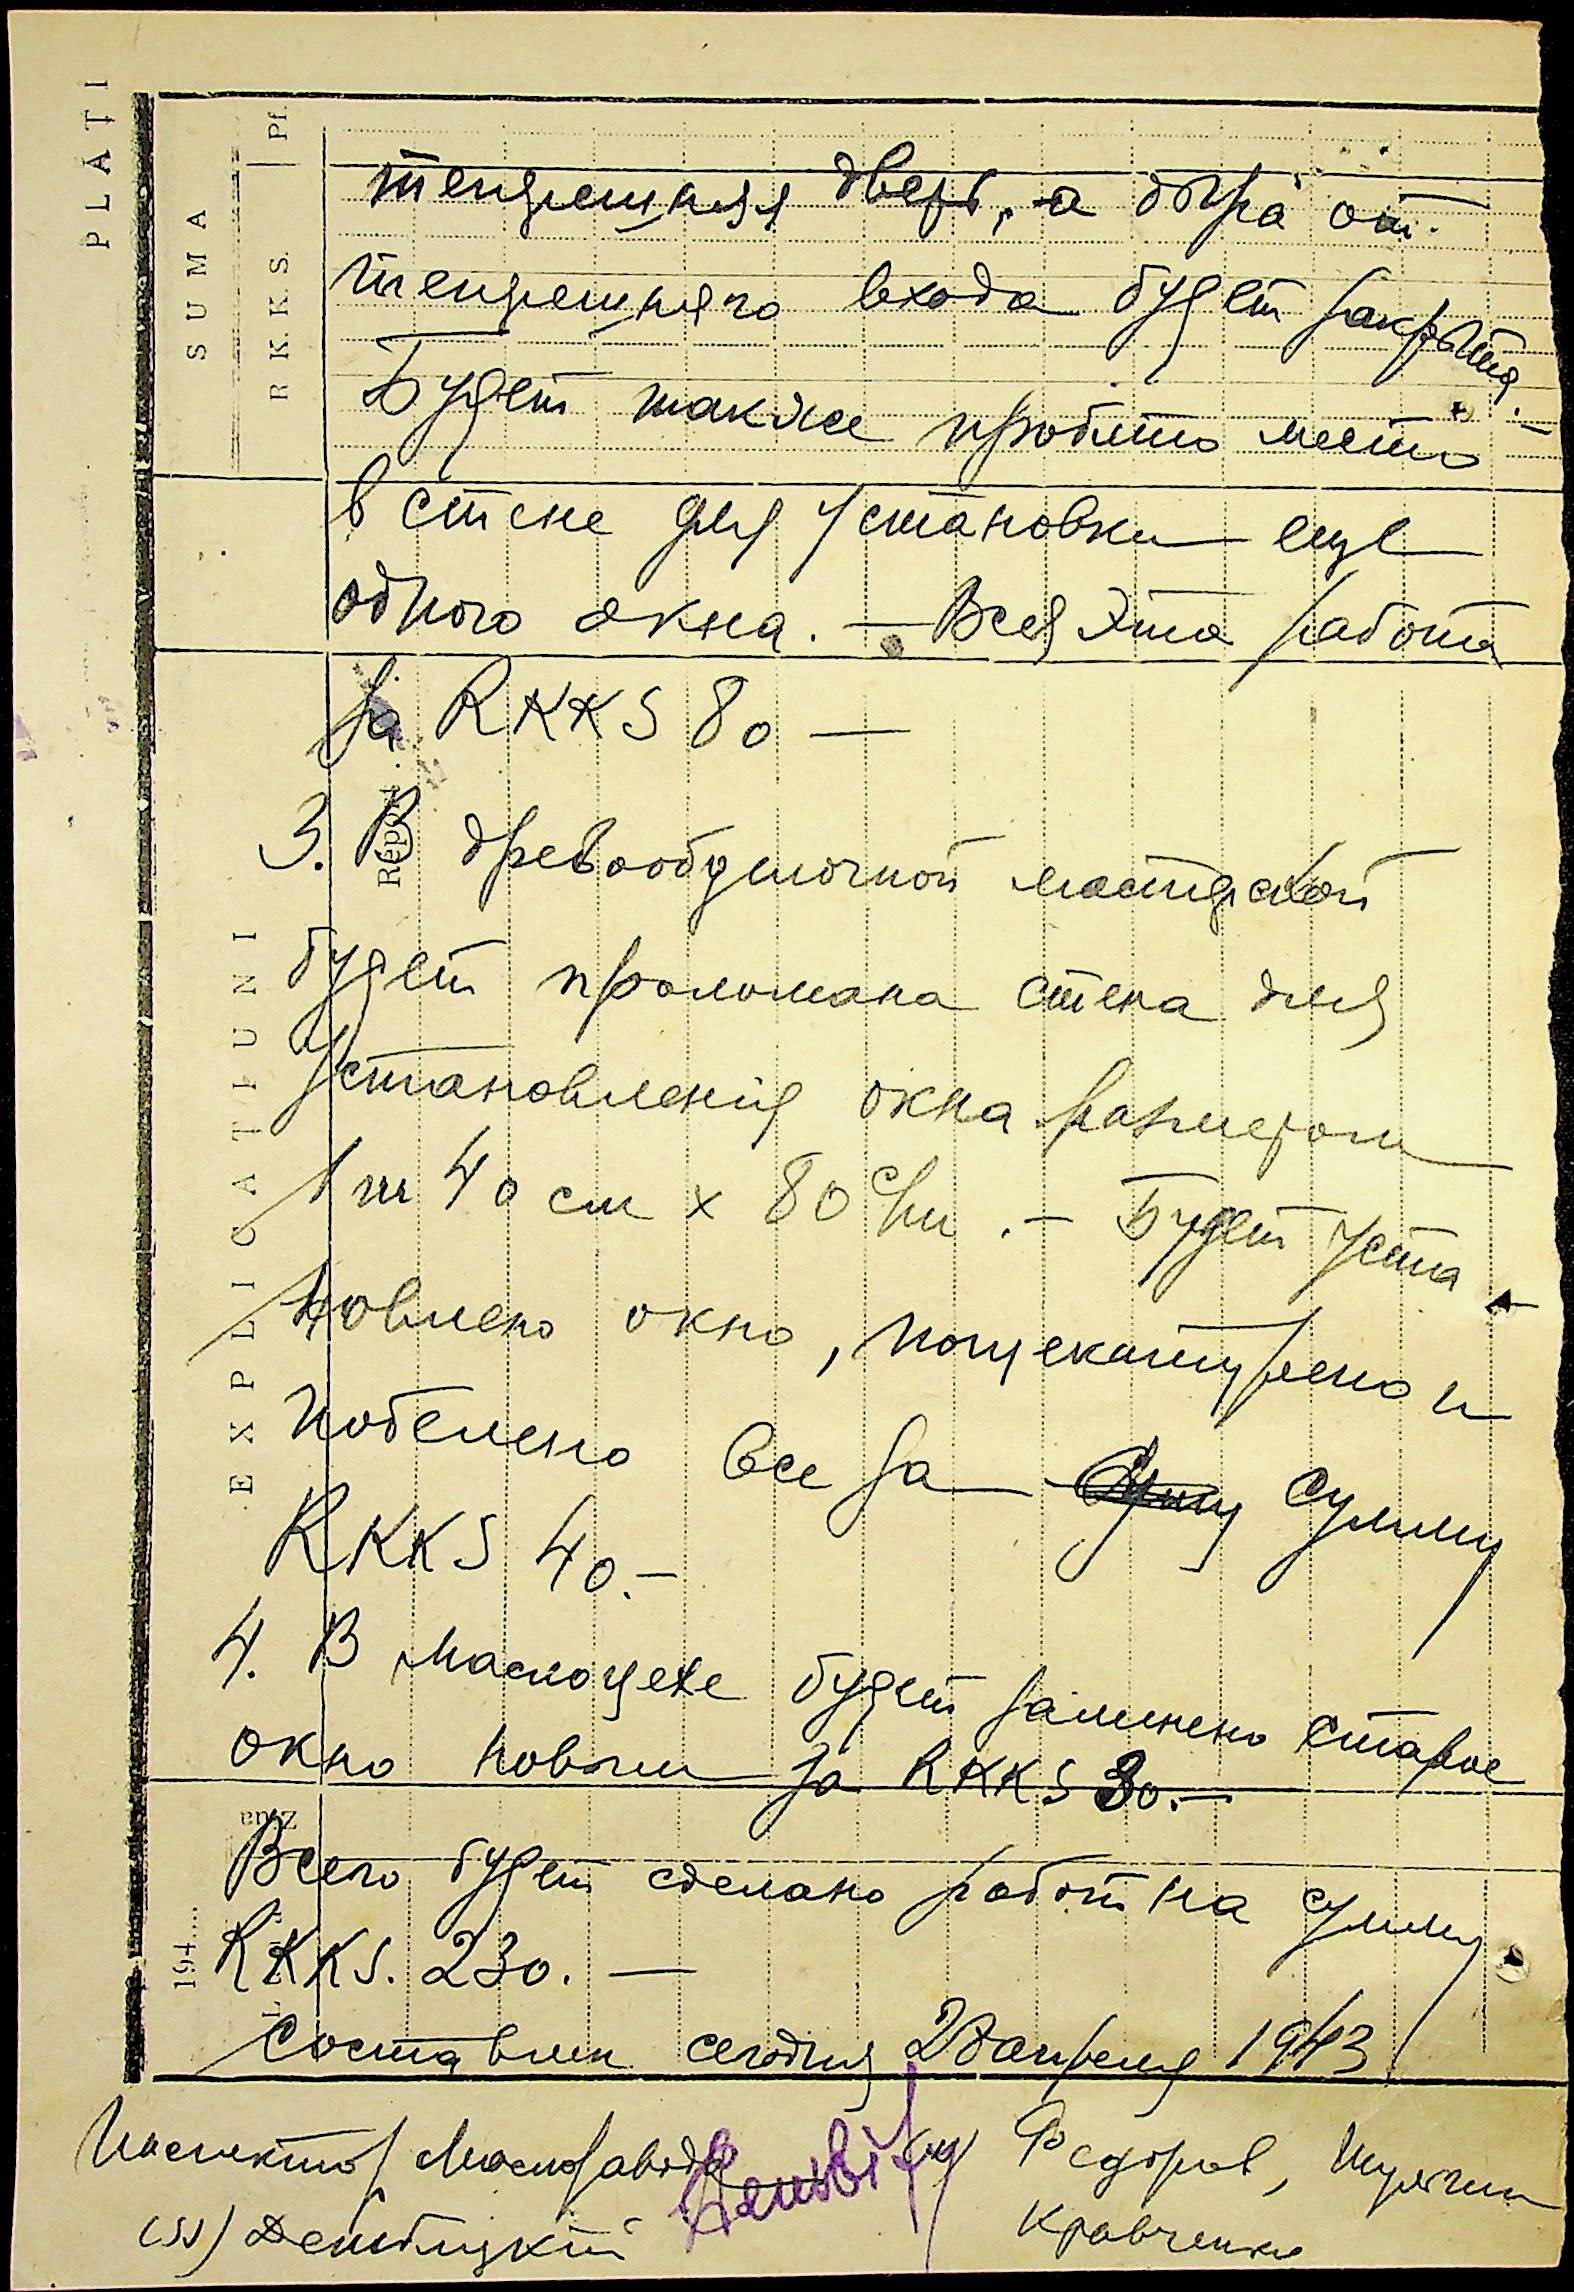 PLĂŢI
SUMA
R K. K. S.
Pf.
EXPLICAŢIUNI
Report
Ziua
194....
тепрешняя дверь, а дыра от
тепрешняго входа будет закрыта. —
Будет также пробито место
в стене для установки еще
одного окна. — Вся эта работа
за RKKS 80 —
3. В древообделочной мастерской
будет проломана стена для
установления окна размером
1 m 40 cm x 80 cm. — Будет уста-
новлено окно, пощекатурено и
побелено все за сумму
RKKS 40.—
4. В маслоцехе будет заменено старое
окно новым за RKKS 30.—
Всего будет сделано работ на сумму
RKKS. 230. —
Составлен сегодня апреля 1943
Инспектор Маслозавода
(ss) Дембицкий
(ss) Федоров, Шулягин
Кравченко